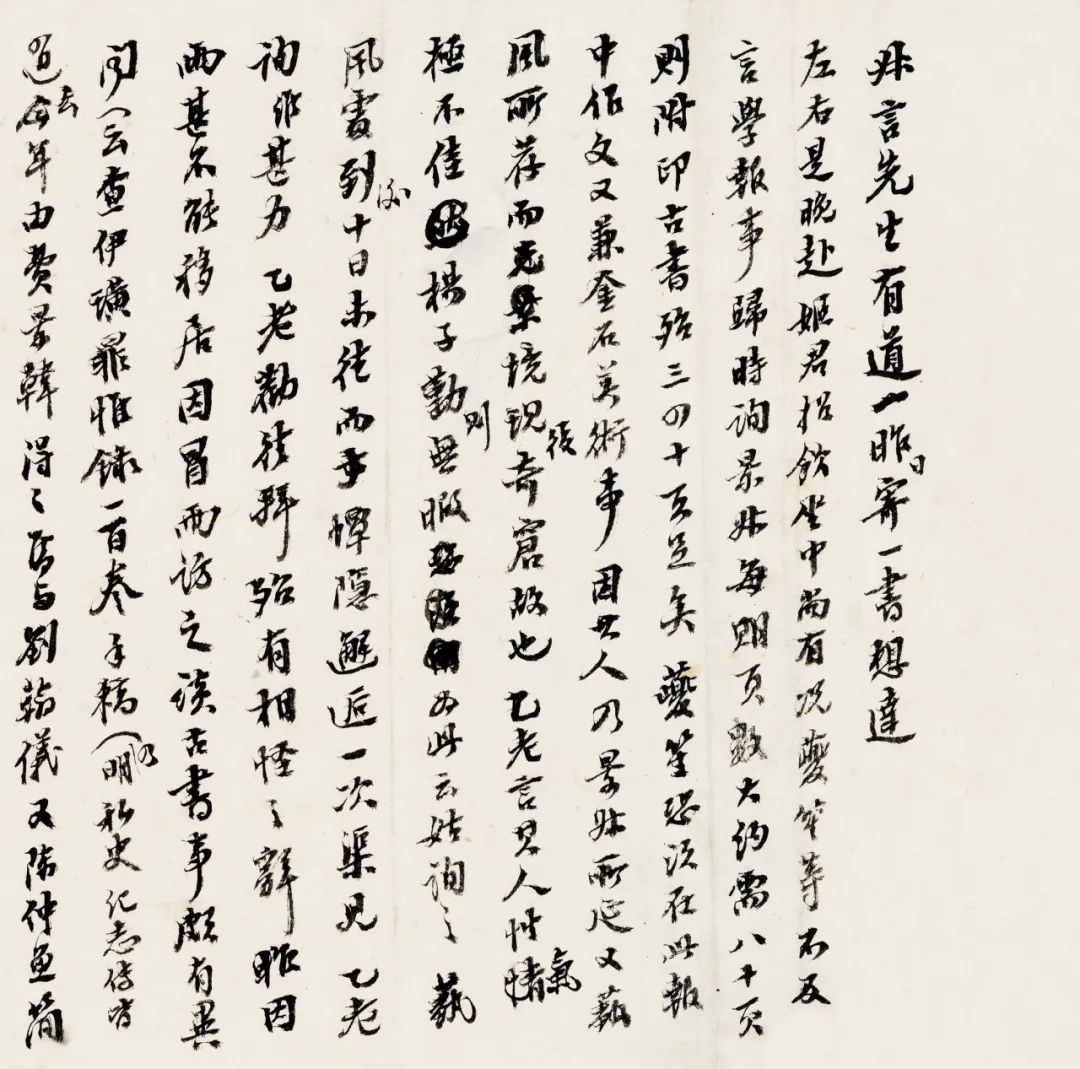 叔言先生有道一昨日寄一書想達
左右是晚赴姬君招飲坐中尚有況夔笙等不及
言學報事歸時詢景叔每期頁數大約需八十頁
則附印古書殆三四十頁足矣夔笙恐須在此報
中作文又兼金石美術事因其人乃景叔所延又藝
風所荐而其境現奇窘故也乙老言其人性情氣
極不佳楊子勤則無暇後為此云姑詢之藝
風處到滬十日未往而于惮隱邂逅一次渠見乙老
詢非甚力乙老勸往拜殆有相怪之辭昨因
雨甚不能移居因冒雨訪之談古書事頗有異
聞(云查伊璜罪惟錄一百卷手稿(乃明私史紀志傳皆
過云今年由費景韓得之后与劉翰儀又陳仲魚簡